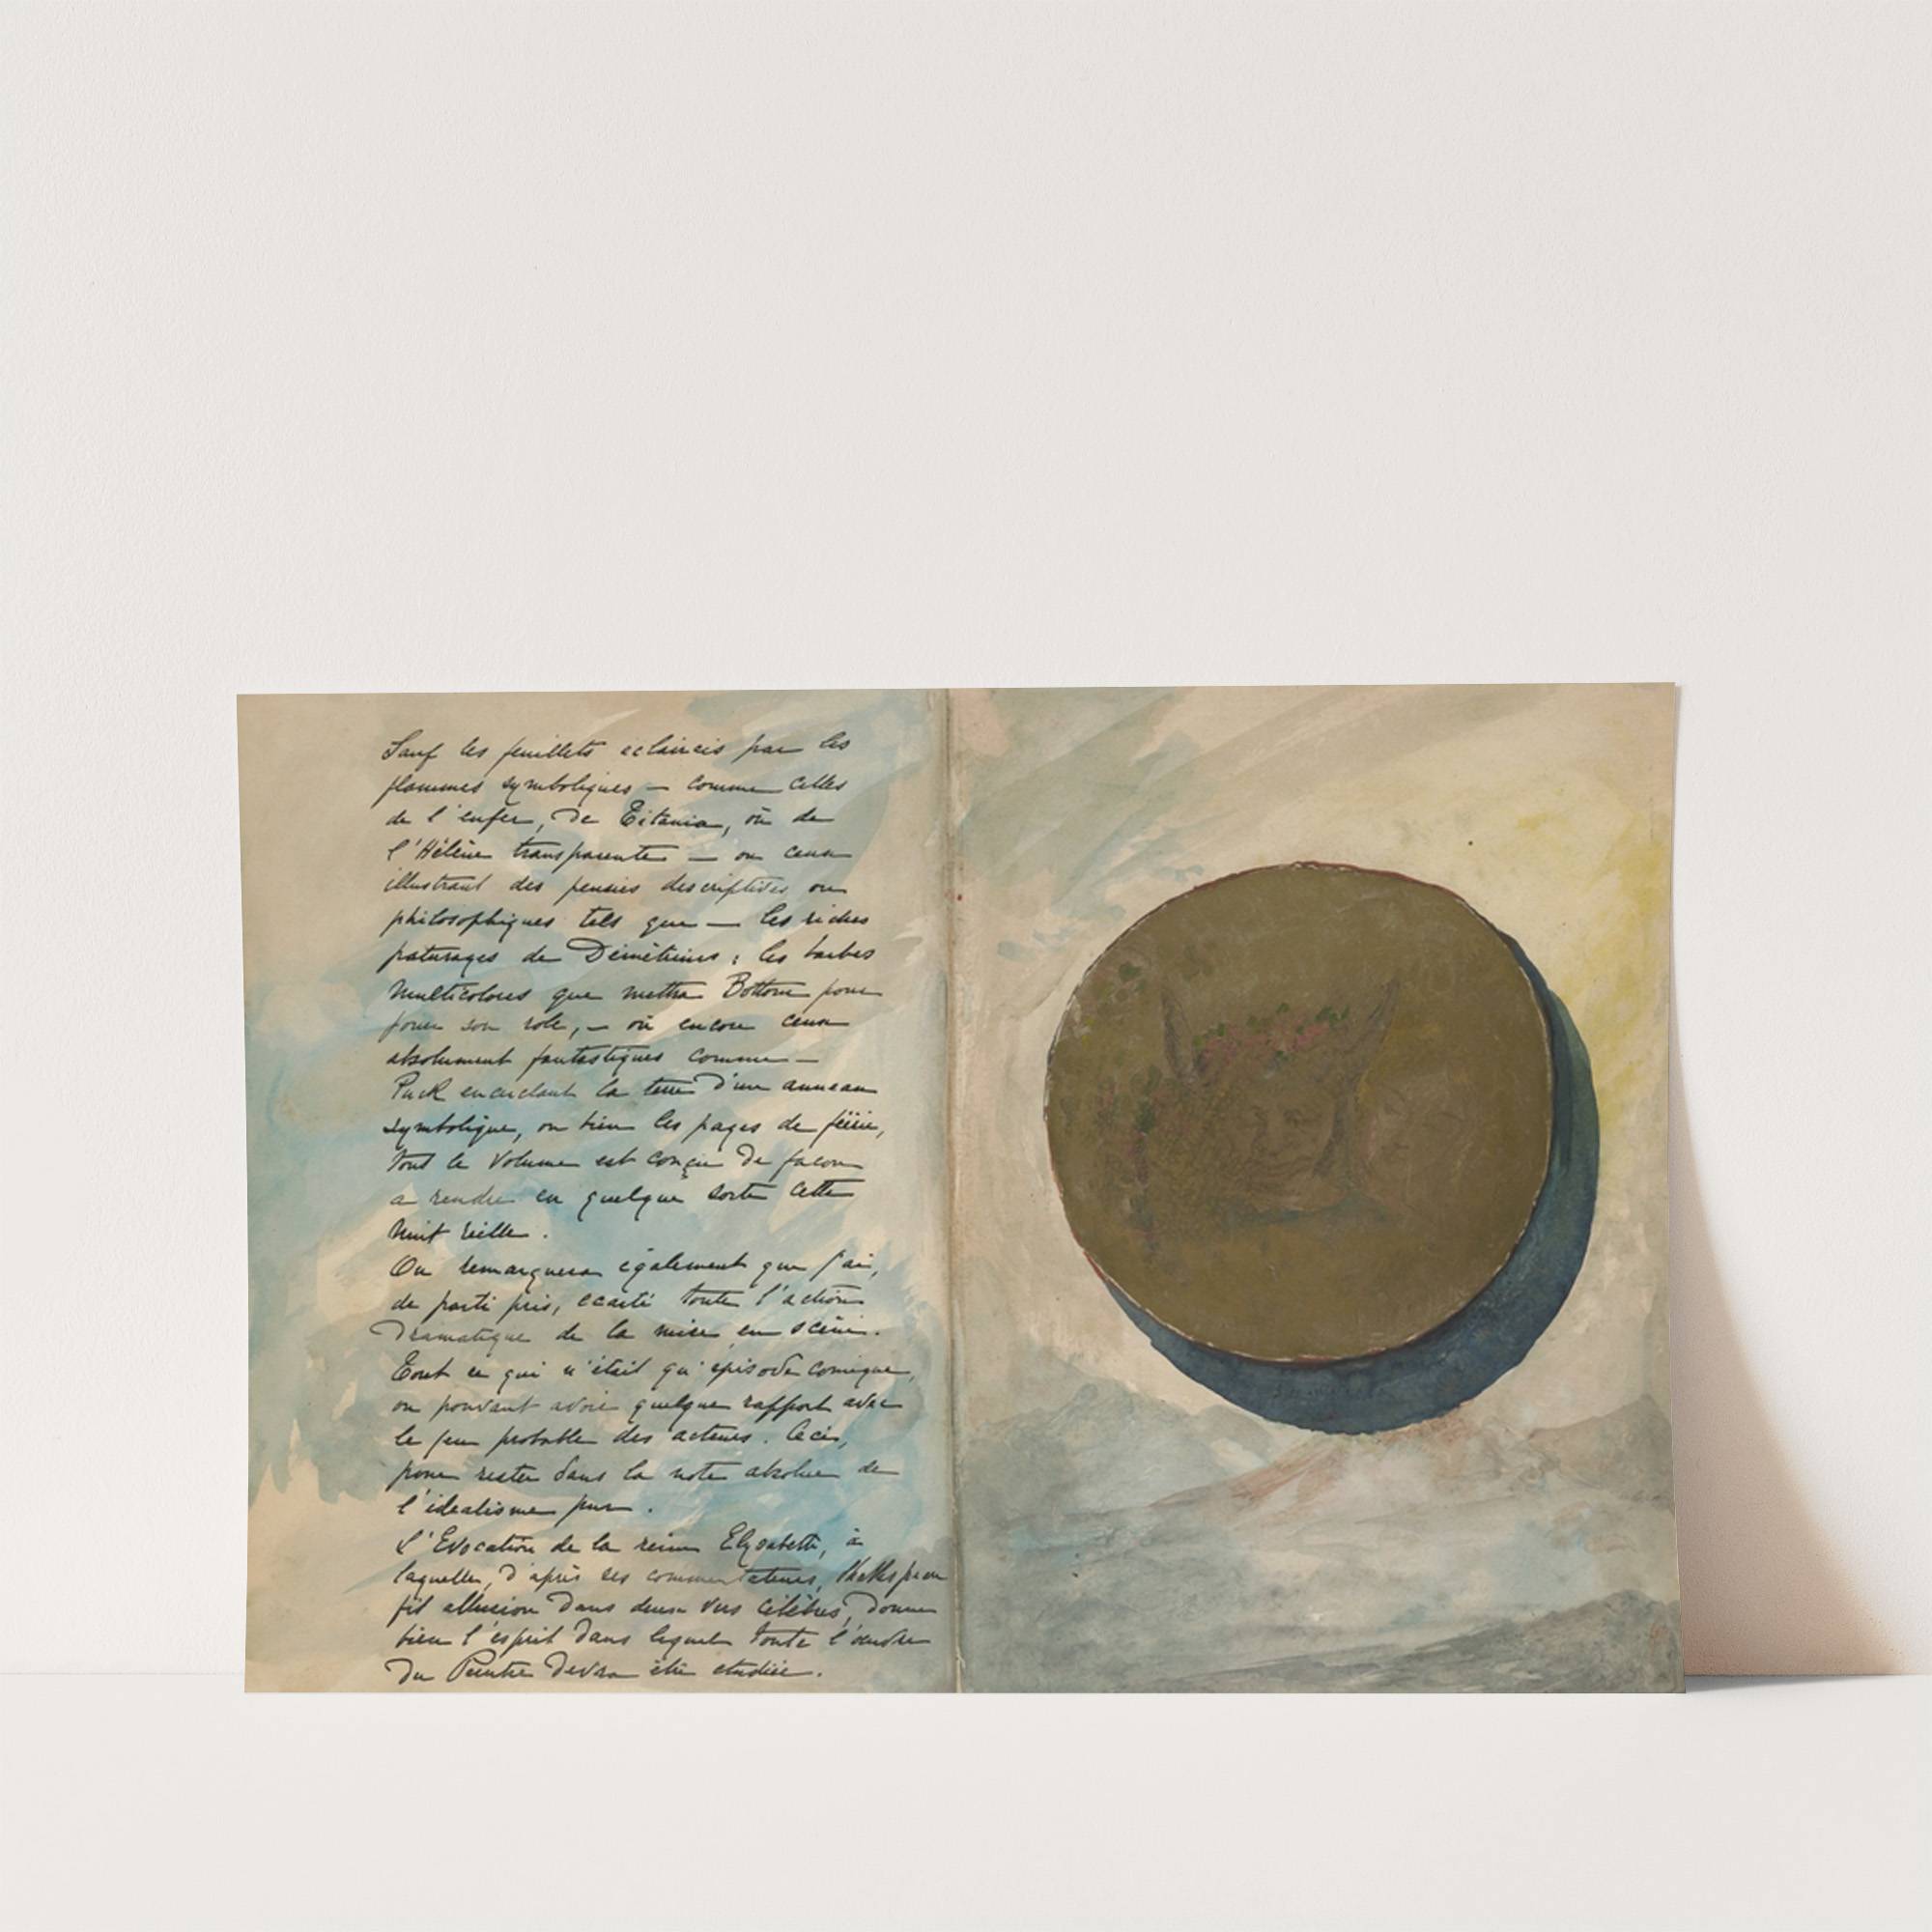 Sauf les feuillets éclaircis par les
flammes symboliques — comme celles
de l'enfer, de Titania, où de
l'Hélène transparente — ou ceux
illustrant des pensées descriptives ou
philosophiques tels que — les riches
paturages de Démétrius ; les barbes
multicolores que mettra Bottom pour
jouer son role, — où encore ceux
absolument fantastiques comme —
Puck encerclant la terre d'un anneau
symbolique, ou bien les pages de féérie,
tout le volume est conçu de facon
a rendre en quelque sorte cette
nuit réelle.
On remarquera également que j'ai,
de parti pris, écarté toute l'action
dramatique de la mise en scène.
Tout ce qui n'était qu'épisode comique,
ou pouvant avoir quelque rapport avec
le jeu probable des acteurs. Ceci,
pour rester dans la note absolue de
l'idealisme pur.
L'Evocation de la reine Elysabeth, à
laquelle, d'après ses commentateurs, Shakspeare
fit allusion dans deux vers célèbres, donne
bien l'esprit dans lequel toute l'œuvre
du Peintre devra être etudiée.